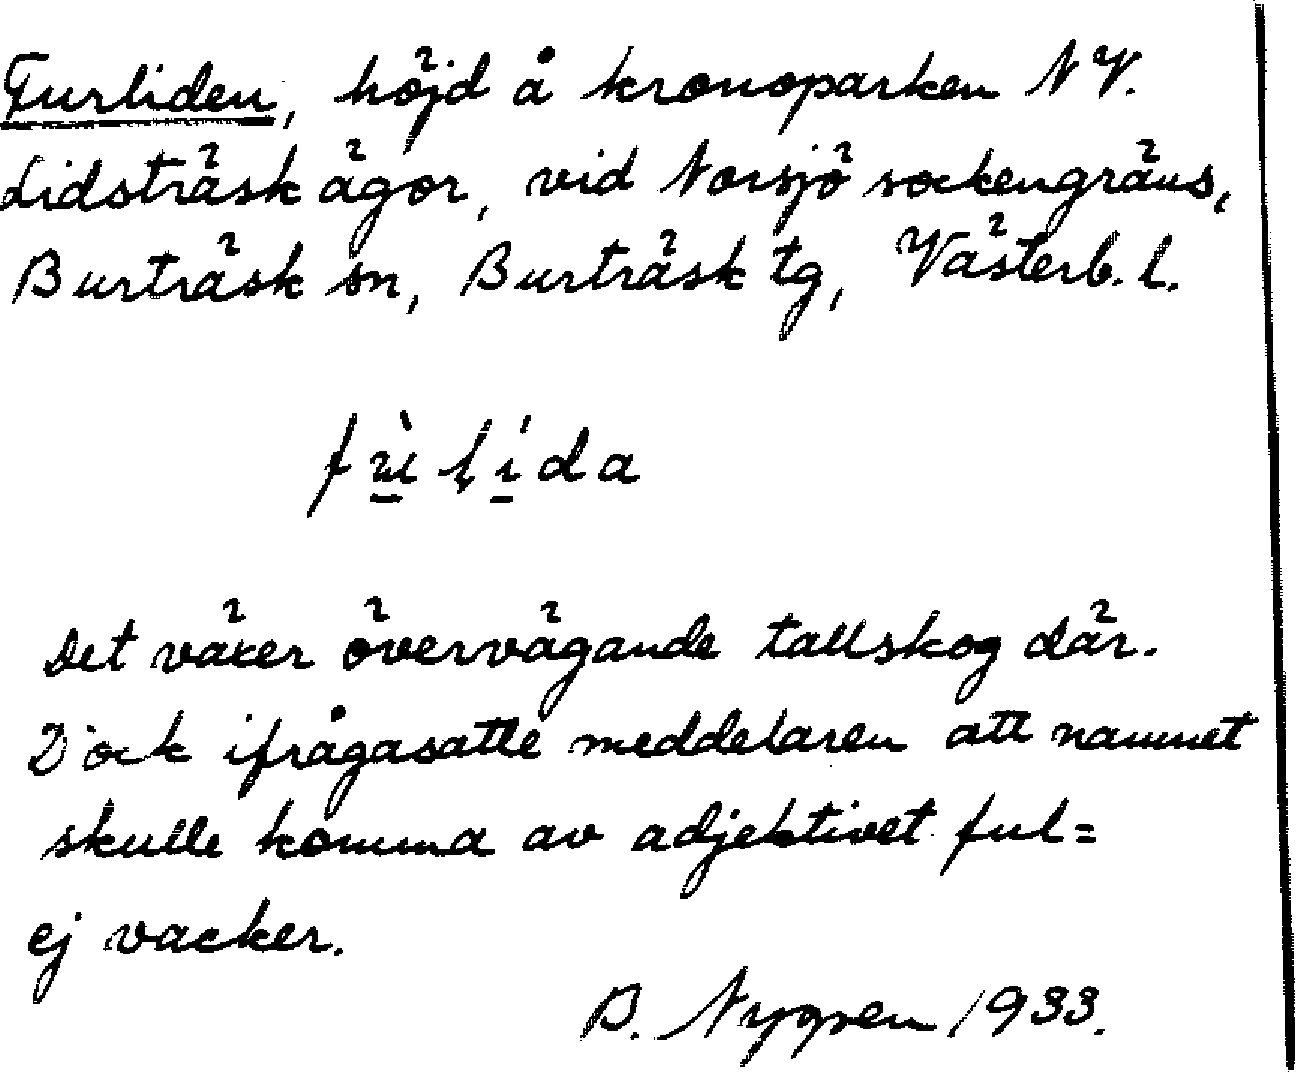 Furliden, höjd å kronoparken N V.
Lidsträsk ägor, vid Norsjö sockengräns,
Burträsk sn, Burträsk tg, Västerb. l.
fù̱lí̱da
Det växer övervägande tallskog där.
Dock ifrågasatte meddelaren att namnet
skulle komma av adjektivet ful=
ej vacker.
B. Nygren 1933.